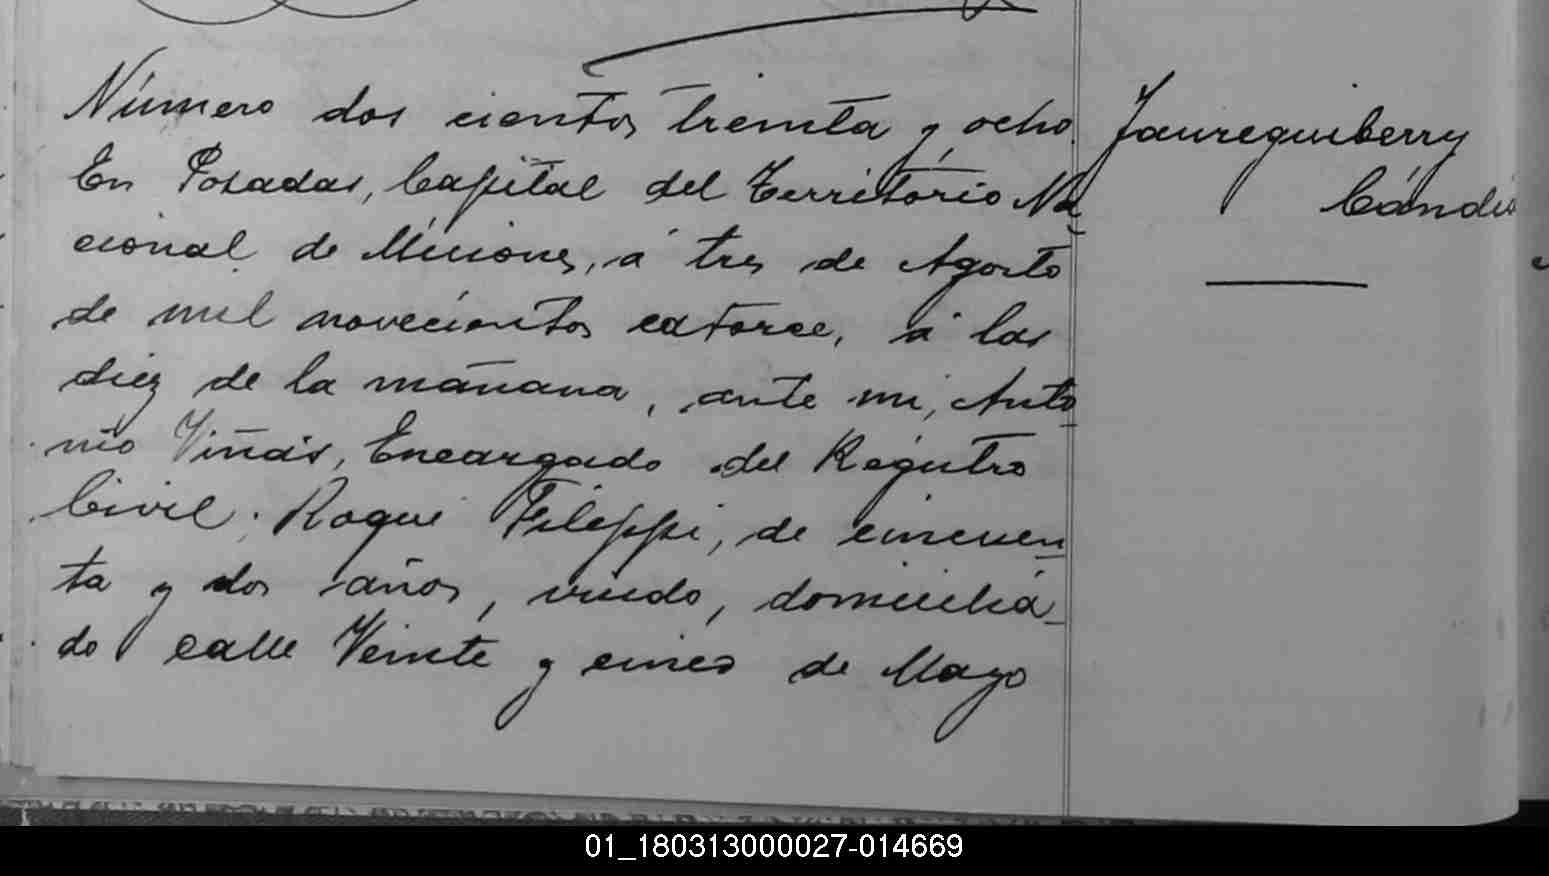 Número dos cientos treinta y ocho.
En Posadas, Capital del Territorio Na
cional de Misiones, á tres de Agosto
de mil novecientos catorce, á las
diez de la mañana, ante mi, Anto
nio Viñas, Encargado del Registro
Civil; Roque Fileppi, de cincuen
ta y dos años, viudo, domicilia
do calle Veinte y cinco de Mayo
Jaureguiberry
Cándid
01_180313000027-014669